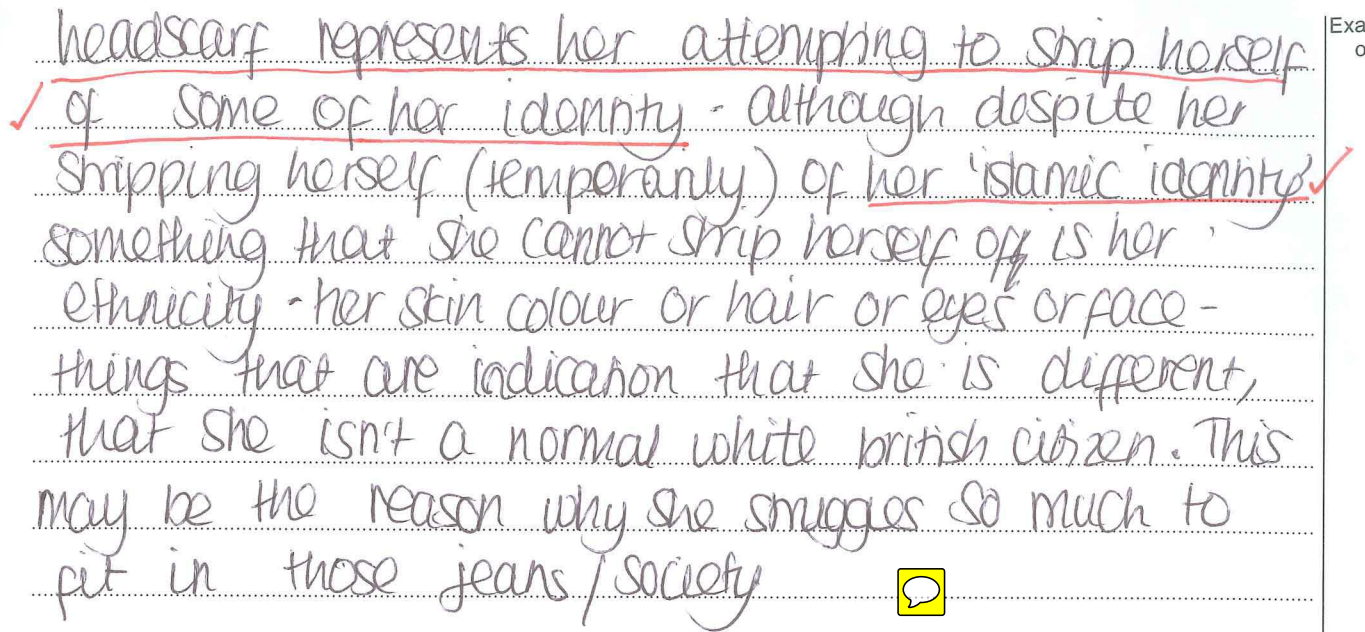 headscarf represents her attempting to strip herself
of some of her identity. although despite her
stripping herself (temporarily) of her 'islamic identity'
something that she cannot strip herself off is her
ethnicity - her skin colour or hair or eyes or face -
things that are indication that she is different,
that she isn't a normal white british citizen. This
may be the reason why she struggles so much to
fit in those jeans / society
Exa
o